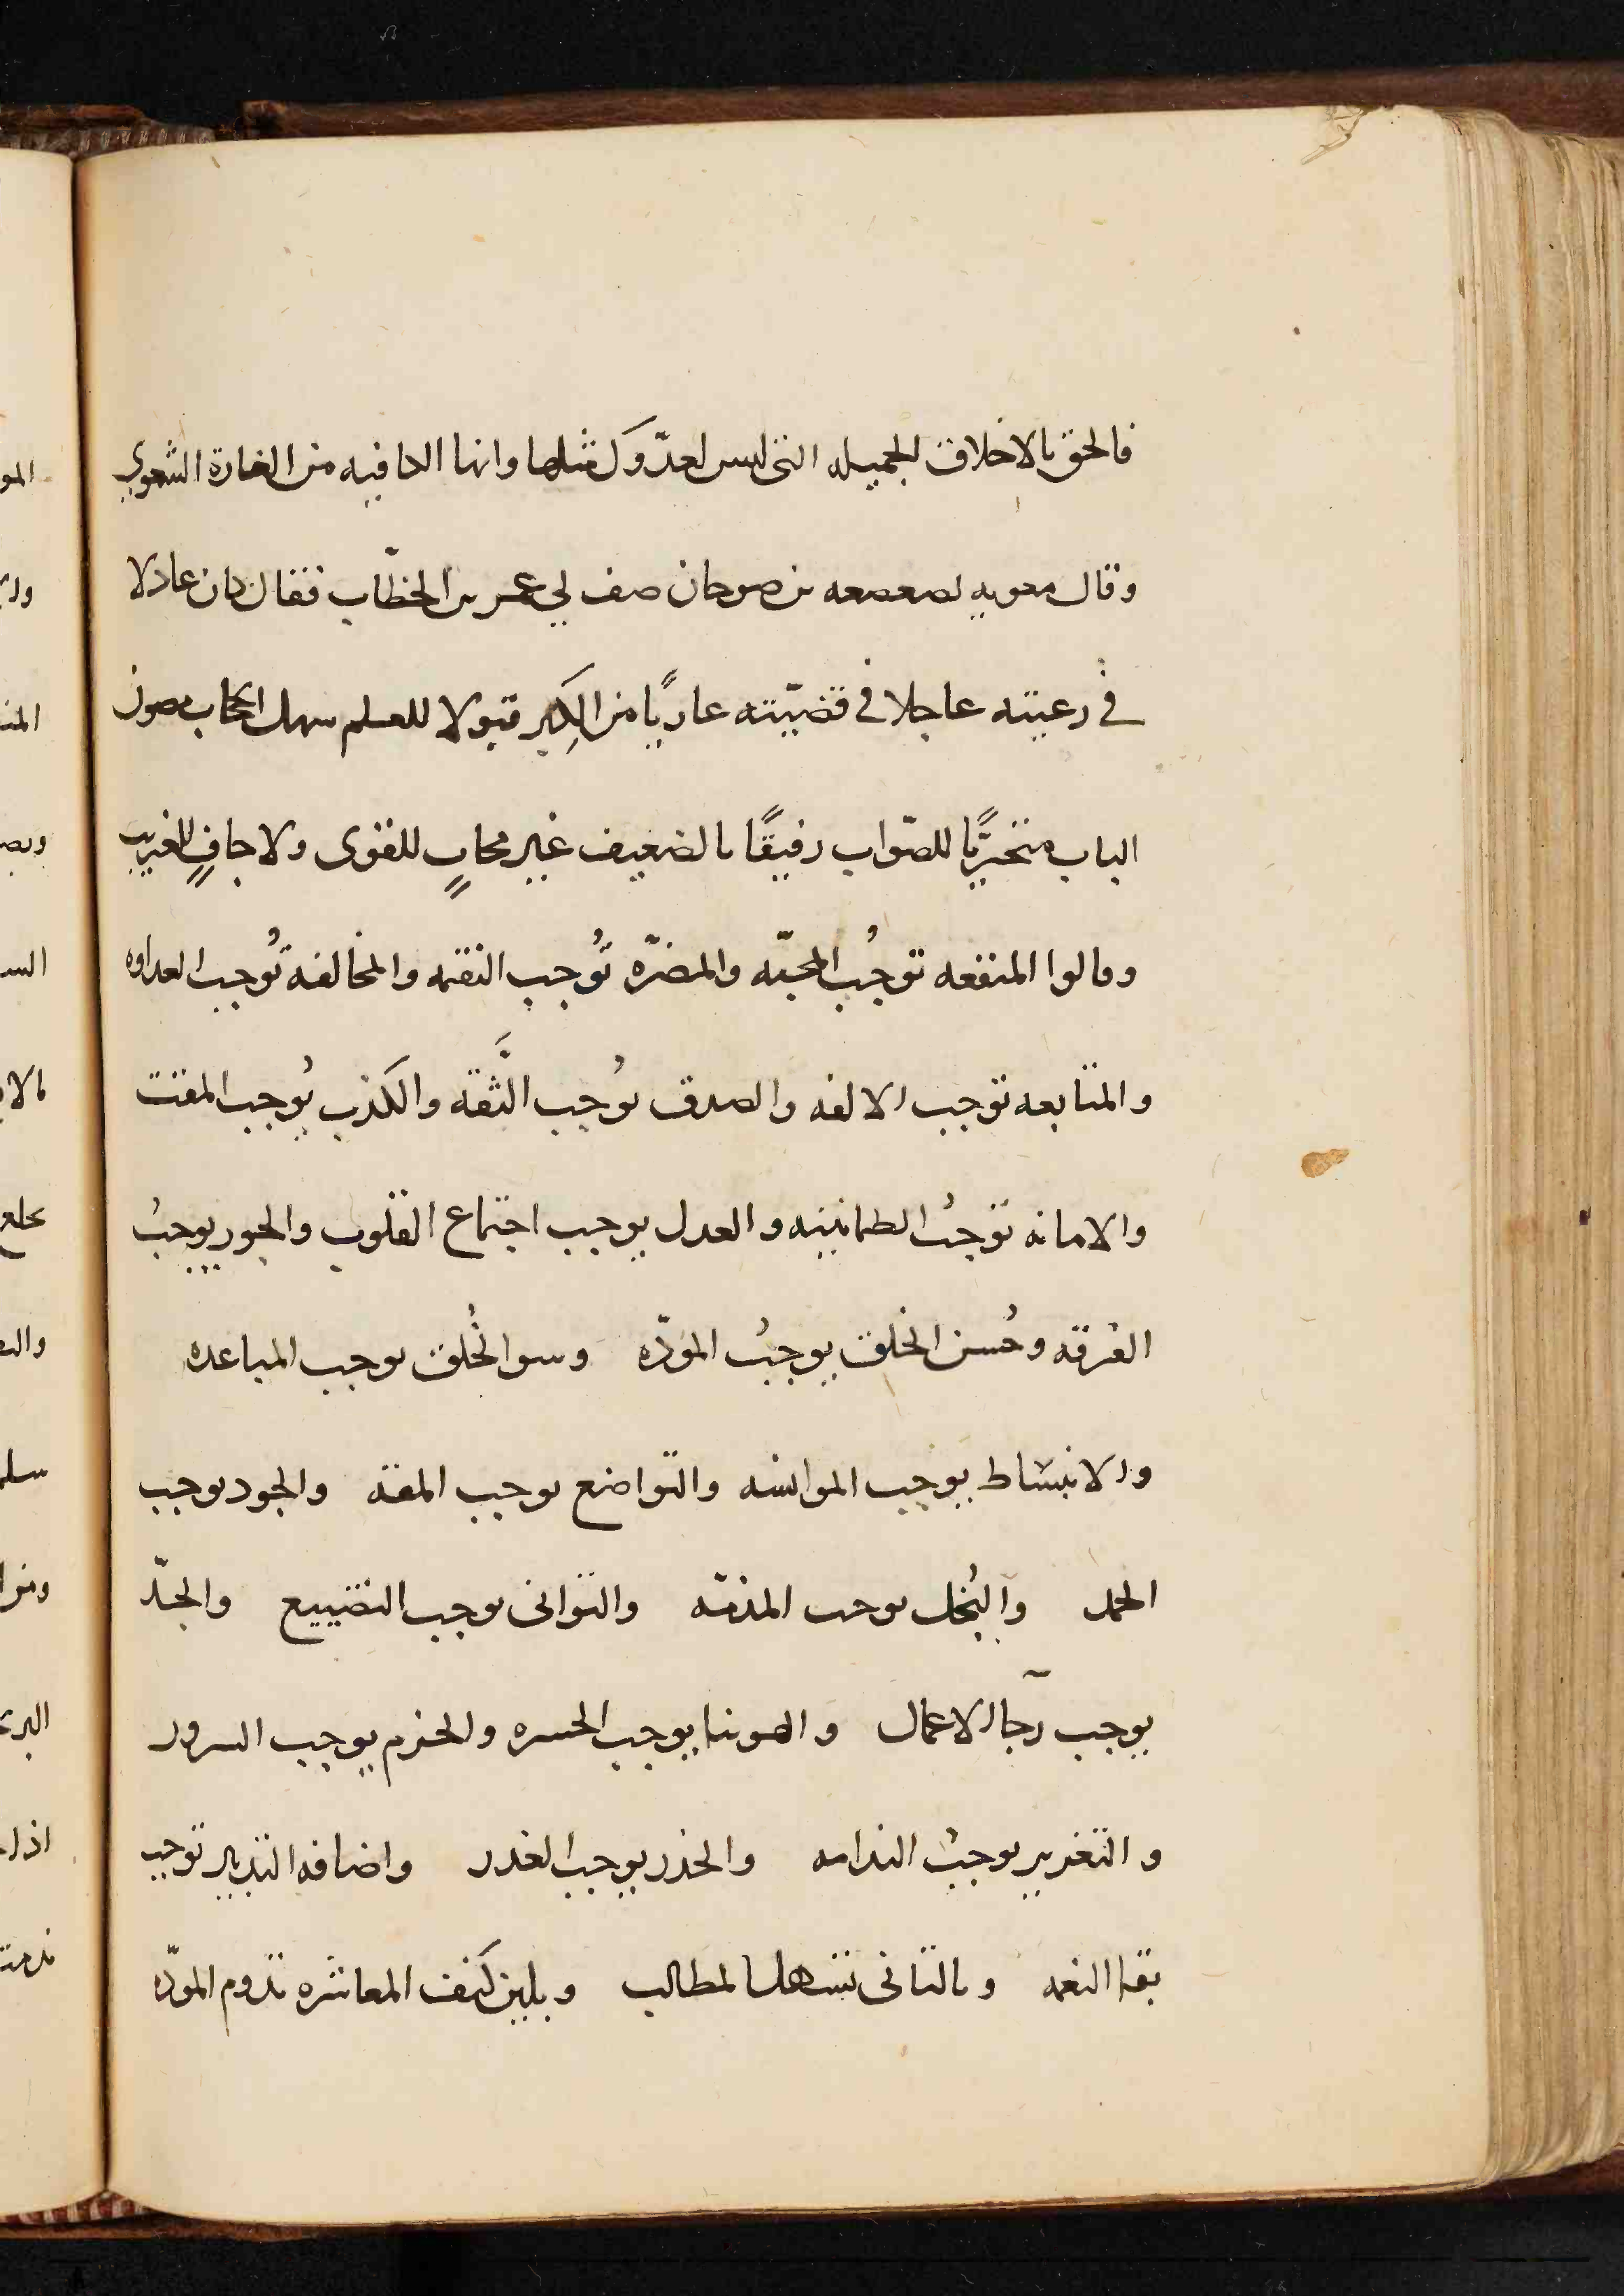 فالحق بالاخلاق الجميله التى ليس لعدوك مثلها وانها الكافيه من الغارة الشعوى
وقال معويه لصعصعه بن صوحان صف لي عمر بن الخطّاب فقال كان عادلا
في رعيته عاجلا في قضيّته عاريًا من الكِبر قبولا للعلم سهل الحجاب مصون
الباب متحرّيًا للصّواب رفيقًا بالضعيف غير محابٍ للقوى ولا جافٍ للغريب
وقالوا المنفعه توجُب المحبّه والمضرّه تُوجب النقمه والمخالفه تُوجب العداوه
والمتابعه توجب الالفه والصدق يُوجب الثّقه والكذب يُوجب المقت
والامانه توجبُ الطمانينه والعدل يوجب اجتماع القلوب والجور يوجبُ
الفُرقه وحُسن الخلق يوجبُ المودّه وسو الخُلق يوجب المباعده
والانبساط يوجب الموانسه والتواضع يوجب المقه والجود يوجب
الحمد والبُخل يوجب المذمّه والتوانى يوجب التضييع والجدّ
يوجب رجا الاعمال والهوينا يوجب الحسره والحزم يوجب السرور
والتغرير يوجبُ الندامه والحذر يوجب العذر واضافه التدبير توجب
بقا النعمه وبالتانى تسهل المطالب وبلين كنف المعاشره تدوم المودّه